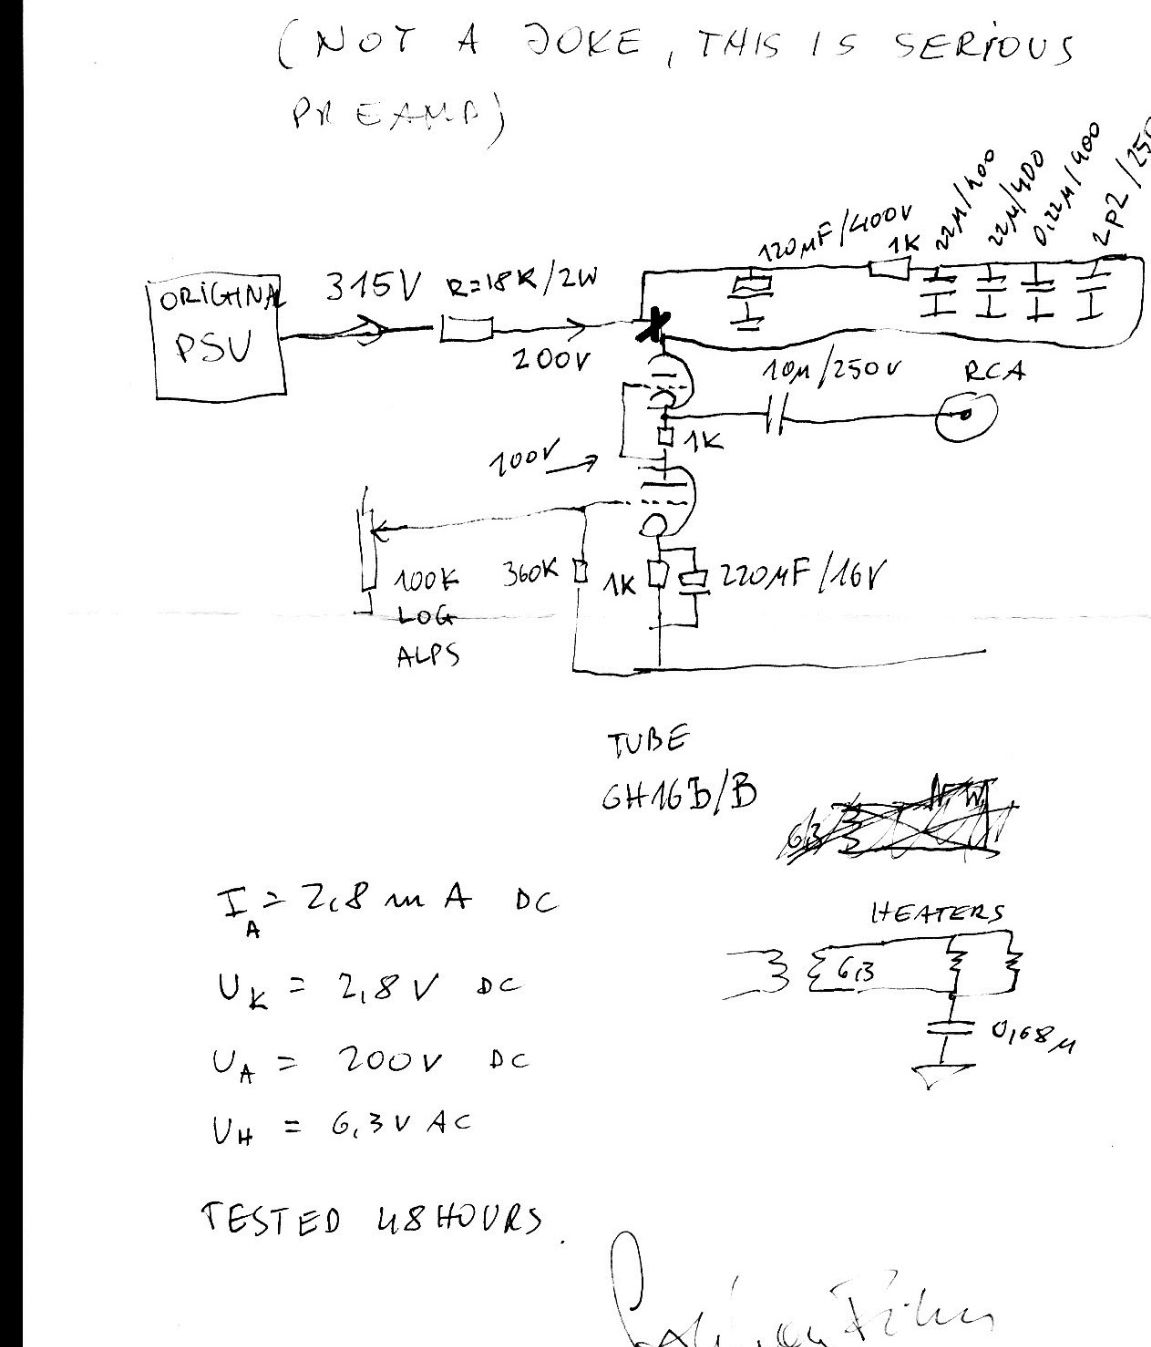 (NOT A JOKE, THIS IS SERIOUS
PREAMP)
ORIGINAL
PSU
315V
R=18K/2W
200V
120µF/400V
1K
22µ/400
22µ/400
0,22µ/400
2p2/250
10µ/250V
RCA
1K
100V
100K
LOG
ALPS
360K
1K
220µF/16V
TUBE
6H16Б/B
6,3
HEATERS
6,3
0,68µ
IA = 2,8 mA DC
UK = 2,8V DC
UA = 200V DC
UH = 6,3V AC
TESTED 48 HOURS.